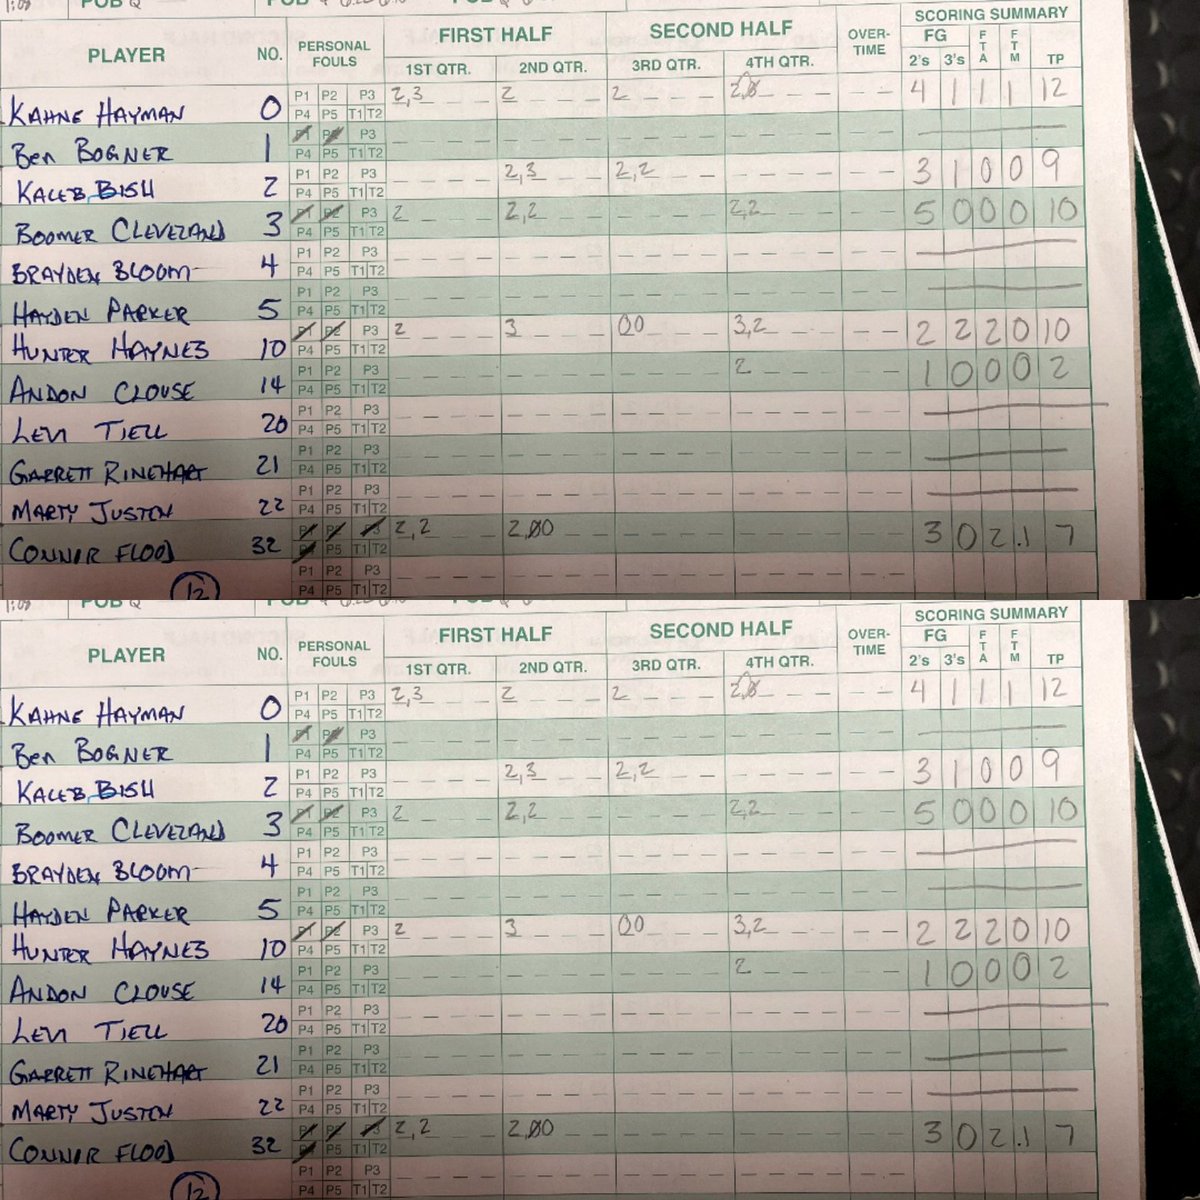 FIRST HALF SECOND HALF OVER-TIME SCORING SUMMARY
PLAYER NO. PERSONAL FOULS 1ST QTR. 2ND QTR. 3RD QTR. 4TH QTR. FG 2's 3's FTA FTM TP
KAHNE HAYMAN 0 P1 P2 P3 2,3 2 2 4 1 1 1 12
P4 P5 T1 T2
BEN BOGNER 1 P1 P2 P3
P4 P5 T1 T2
KALEB BISH 2 P1 P2 P3 2,3 2,2 3 1 0 0 9
P4 P5 T1 T2
BOOMER CLEVELAND 3 P1 P2 P3 2 2,2 2,2 5 0 0 0 10
P4 P5 T1 T2
BRAYDEN BLOOM 4 P1 P2 P3
P4 P5 T1 T2
HAYDEN PARKER 5 P1 P2 P3
P4 P5 T1 T2
HUNTER HAYNES 10 P1 P2 P3 2 3 00 3,2 2 2 2 0 10
P4 P5 T1 T2
ANDON CLOUSE 14 P1 P2 P3 2 1 0 0 0 2
P4 P5 T1 T2
LEVI TJELL 20 P1 P2 P3
P4 P5 T1 T2
GARRETT RINEHART 21 P1 P2 P3
P4 P5 T1 T2
MARTY JUSTON 22 P1 P2 P3
P4 P5 T1 T2
CONNOR FLOOD 32 P1 P2 P3 2,2 2,00 3 0 2 1 7
P4 P5 T1 T2
12 P1 P2 P3
P4 P5 T1 T2
FIRST HALF SECOND HALF OVER-TIME SCORING SUMMARY
PLAYER NO. PERSONAL FOULS 1ST QTR. 2ND QTR. 3RD QTR. 4TH QTR. FG 2's 3's FTA FTM TP
KAHNE HAYMAN 0 P1 P2 P3 2,3 2 2 4 1 1 1 12
P4 P5 T1 T2
BEN BOGNER 1 P1 P2 P3
P4 P5 T1 T2
KALEB BISH 2 P1 P2 P3 2,3 2,2 3 1 0 0 9
P4 P5 T1 T2
BOOMER CLEVELAND 3 P1 P2 P3 2 2,2 2,2 5 0 0 0 10
P4 P5 T1 T2
BRAYDEN BLOOM 4 P1 P2 P3
P4 P5 T1 T2
HAYDEN PARKER 5 P1 P2 P3
P4 P5 T1 T2
HUNTER HAYNES 10 P1 P2 P3 2 3 00 3,2 2 2 2 0 10
P4 P5 T1 T2
ANDON CLOUSE 14 P1 P2 P3 2 1 0 0 0 2
P4 P5 T1 T2
LEVI TJELL 20 P1 P2 P3
P4 P5 T1 T2
GARRETT RINEHART 21 P1 P2 P3
P4 P5 T1 T2
MARTY JUSTON 22 P1 P2 P3
P4 P5 T1 T2
CONNOR FLOOD 32 P1 P2 P3 2,2 2,00 3 0 2 1 7
P4 P5 T1 T2
12 P1 P2 P3
P4 P5 T1 T2